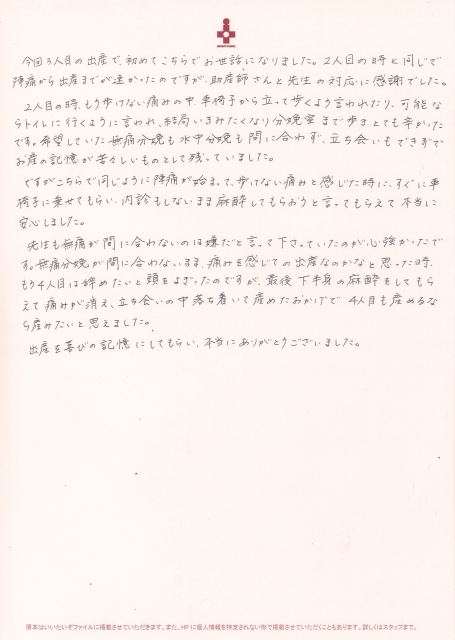 今回3人目の出産で、初めてこちらでお世話になりました。2人目の時と同じで
陣痛から出産までが速かったのですが、助産師さんと先生の対応に感謝でした。
2人目の時、もう歩けない痛みの中、車椅子から立って歩くよう言われたり、可能な
らトイレに行くように言われ、結局いきみたくなり分娩室まで歩きとても辛かった
です。希望していた無痛分娩も水中分娩も間に合わず、立ち会いもできずで
お産の記憶が苦々しいものとして残っていました。
ですがこちらで同じように陣痛が始まって、歩けない痛みと感じた時に、すぐに車
椅子に乗せてもらい、内診もしないまま麻酔してもらおうと言ってもらえて本当に
安心しました。
先生も無痛が間に合わないのは嫌だと言って下さっていたのが心強かったで
す。無痛分娩が間に合わないまま、痛みを感じての出産なのかなと思った時、
もう4人目は辞めたいと頭をよぎったのですが、最後下半身の麻酔をしてもら
えて痛みが消え、立ち会いの中落ち着いて産めたおかげで4人目も産めるな
ら産みたいと思えました。
出産を喜びの記憶にしてもらい、本当にありがとうございました。
原本はいいたいぞファイルに掲載させていただきます。また、HPに個人情報を特定されない形で掲載させていただくこともあります。詳しくはスタッフまで。